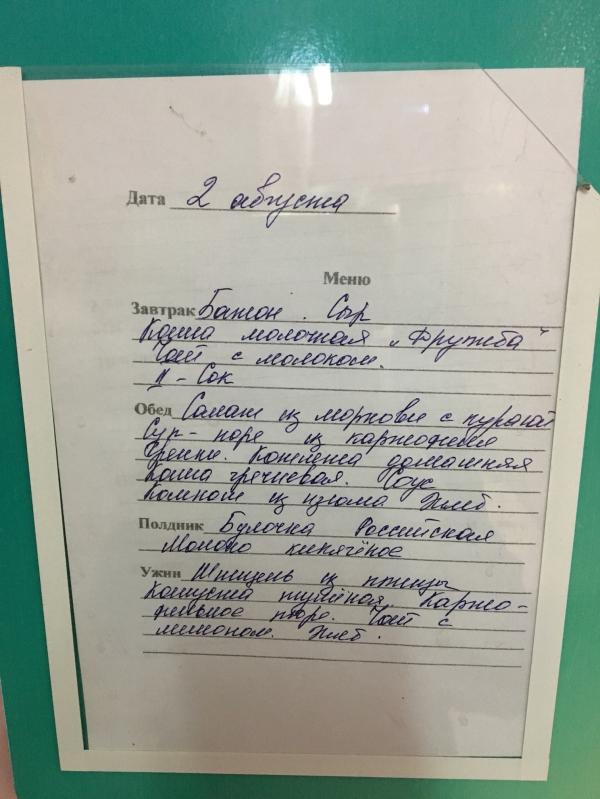 Дата 2 августа
Меню
Завтрак Батон. Сыр
Каша молочная „Дружба"
Чай с молоком.
II - Сок
Обед Салат из моркови с курагой
Суп-пюре из картофеля
Гренки. Котлета домашняя
Каша гречневая. Соус
Компот из изюма Хлеб.
Полдник Булочка Российская
Молоко кипячёное
Ужин Шницель из птицы
Капуста тушёная. Карто-
фельное пюре. Чай с
лимоном. Хлеб.